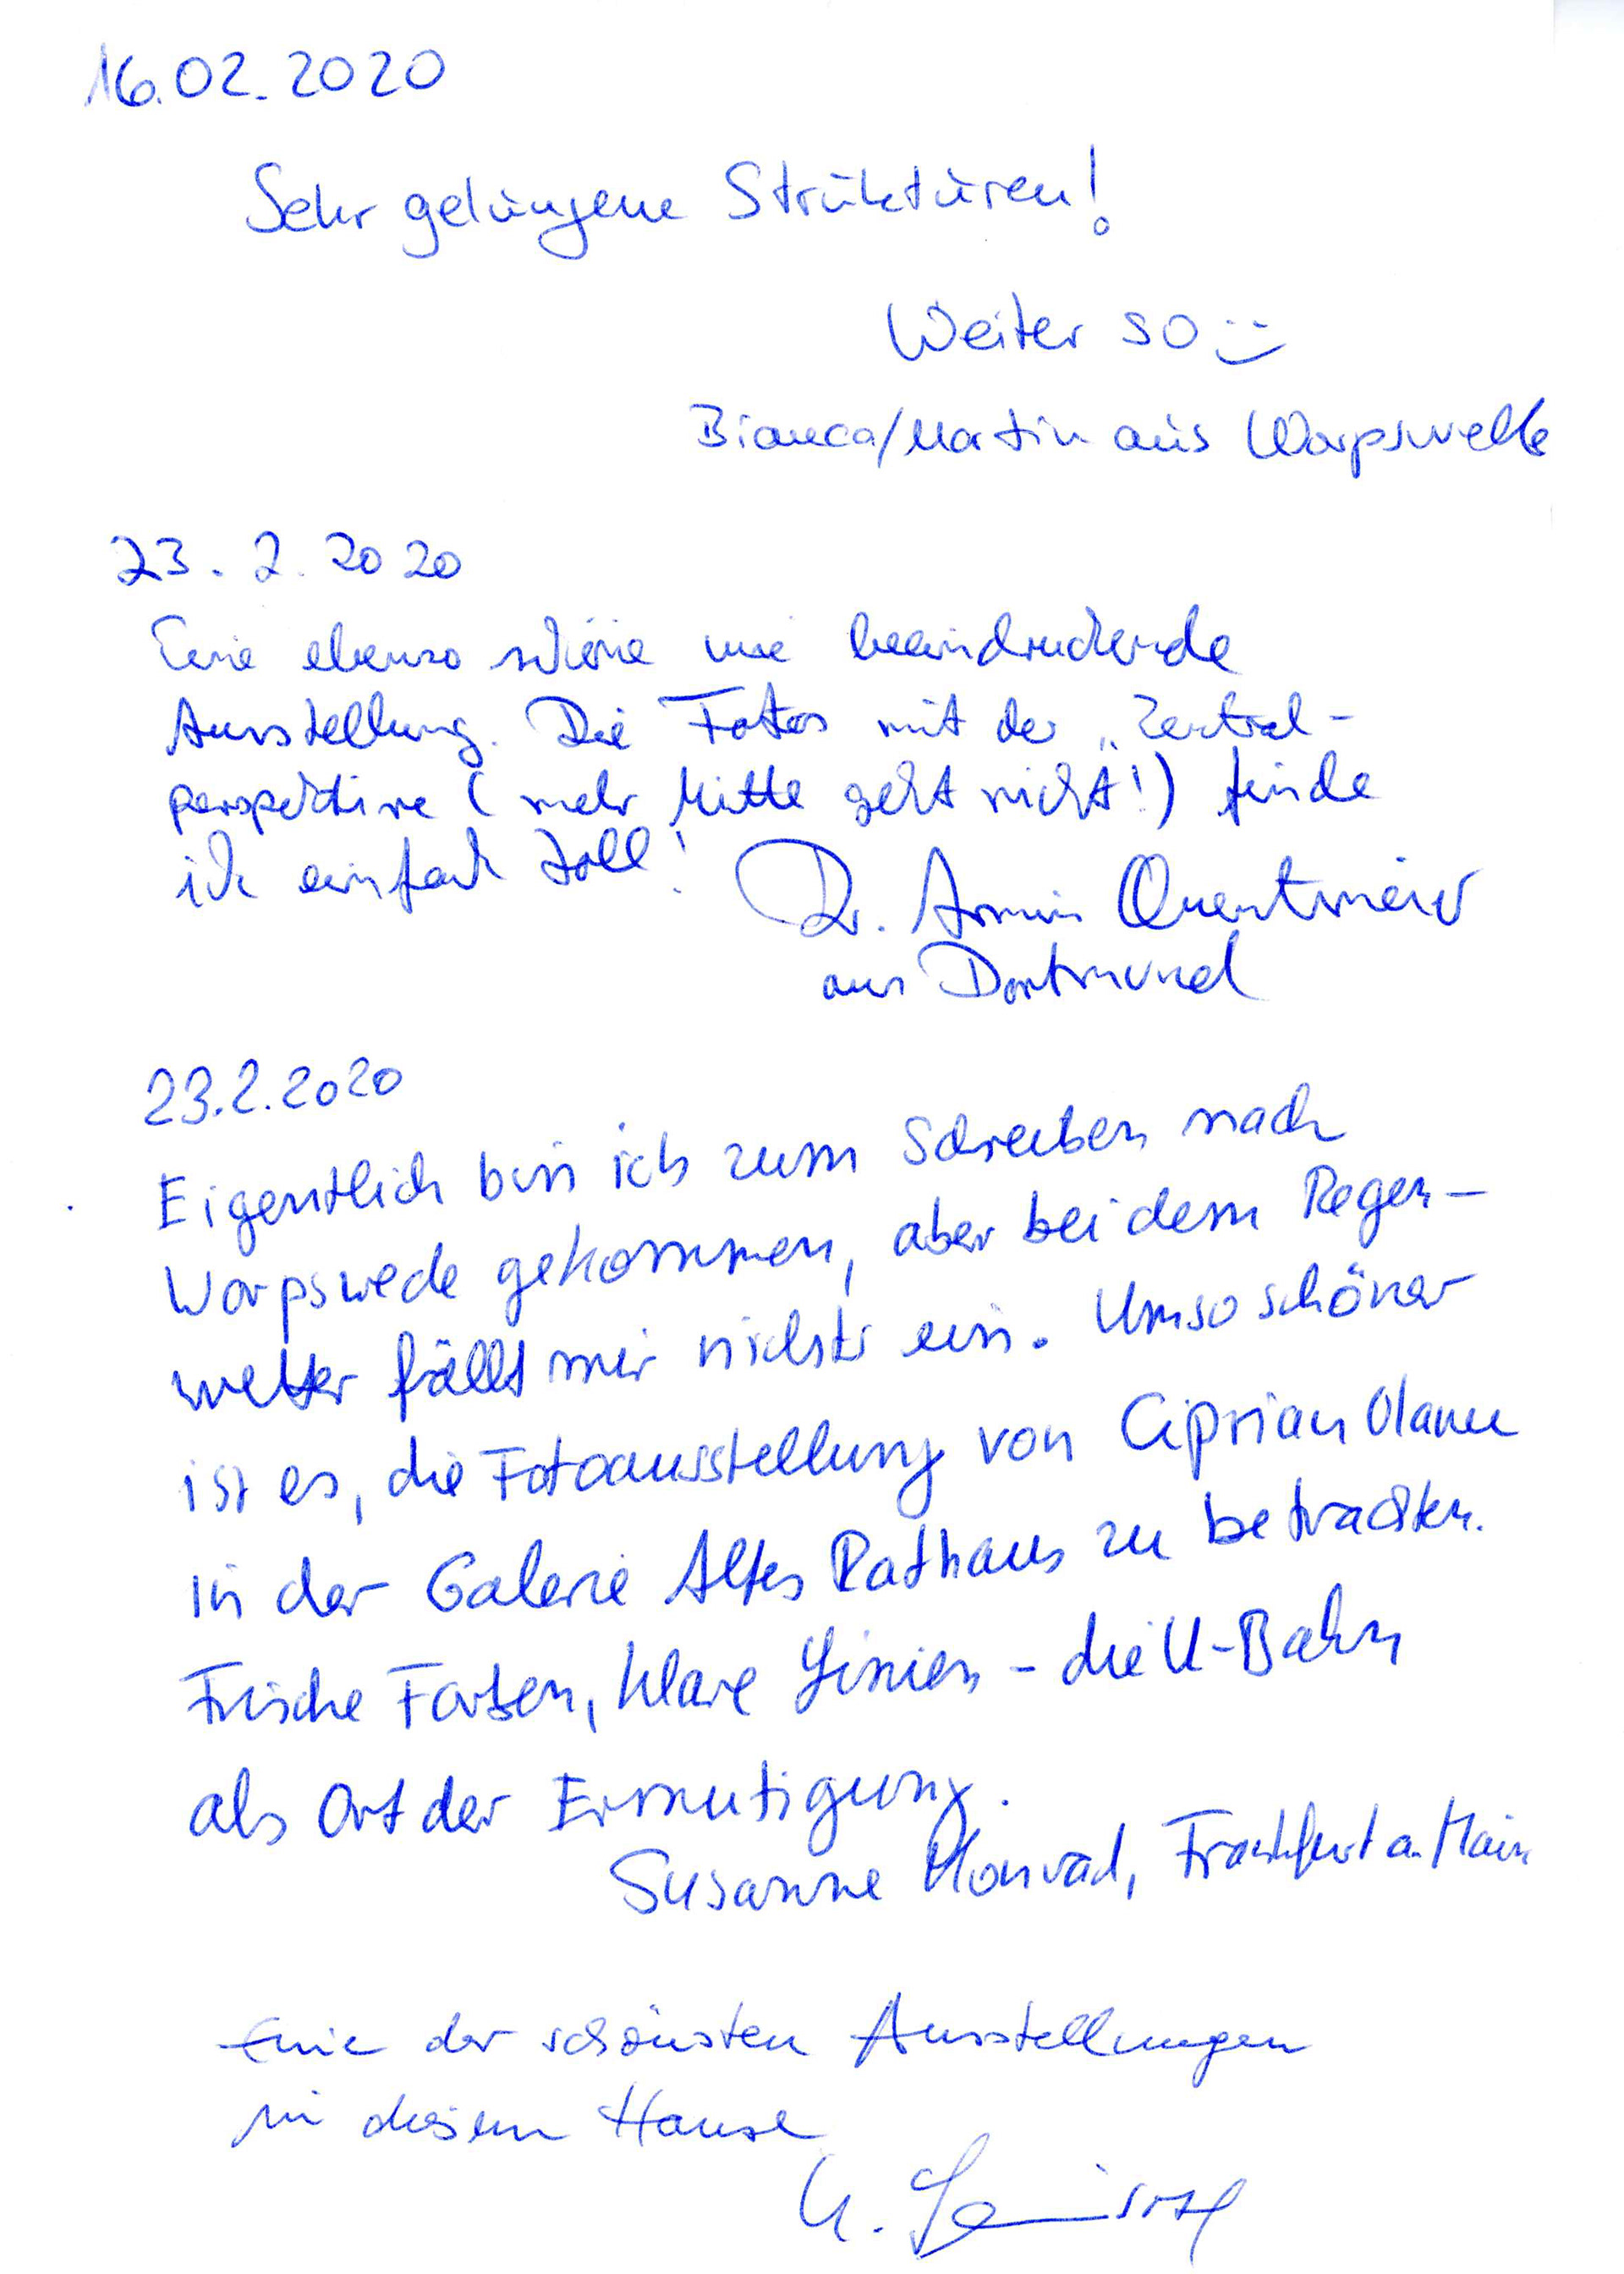 16.02.2020
Sehr gelungene Strukturen!
Weiter so :)
Bianca/Martin aus
23.2.2020
Eine ebenso schöne wie beeindruckende
Ausstellung. Die Fotos mit der „Zentral-
perspektive (mehr Mitte geht nicht!) finde
ich einfach toll!
Dr. Armin Quentmeier
aus Dortmund
23.2.2020
Eigentlich bin ich zum Schreiben nach
Worpswede gekommen, aber bei dem Regen-
wetter fällt mir nichts ein. Umso schöner
ist es, die Fotoausstellung von Ciprian Olanu
in der Galerie Altes Rathaus zu betrachten.
Frische Farben, klare Linien - die U-Bahn
als Ort der Ermutigung.
Susanne Konrad, Frankfurt a. Main
Eine der schönsten Ausstellungen
in diesem Hause